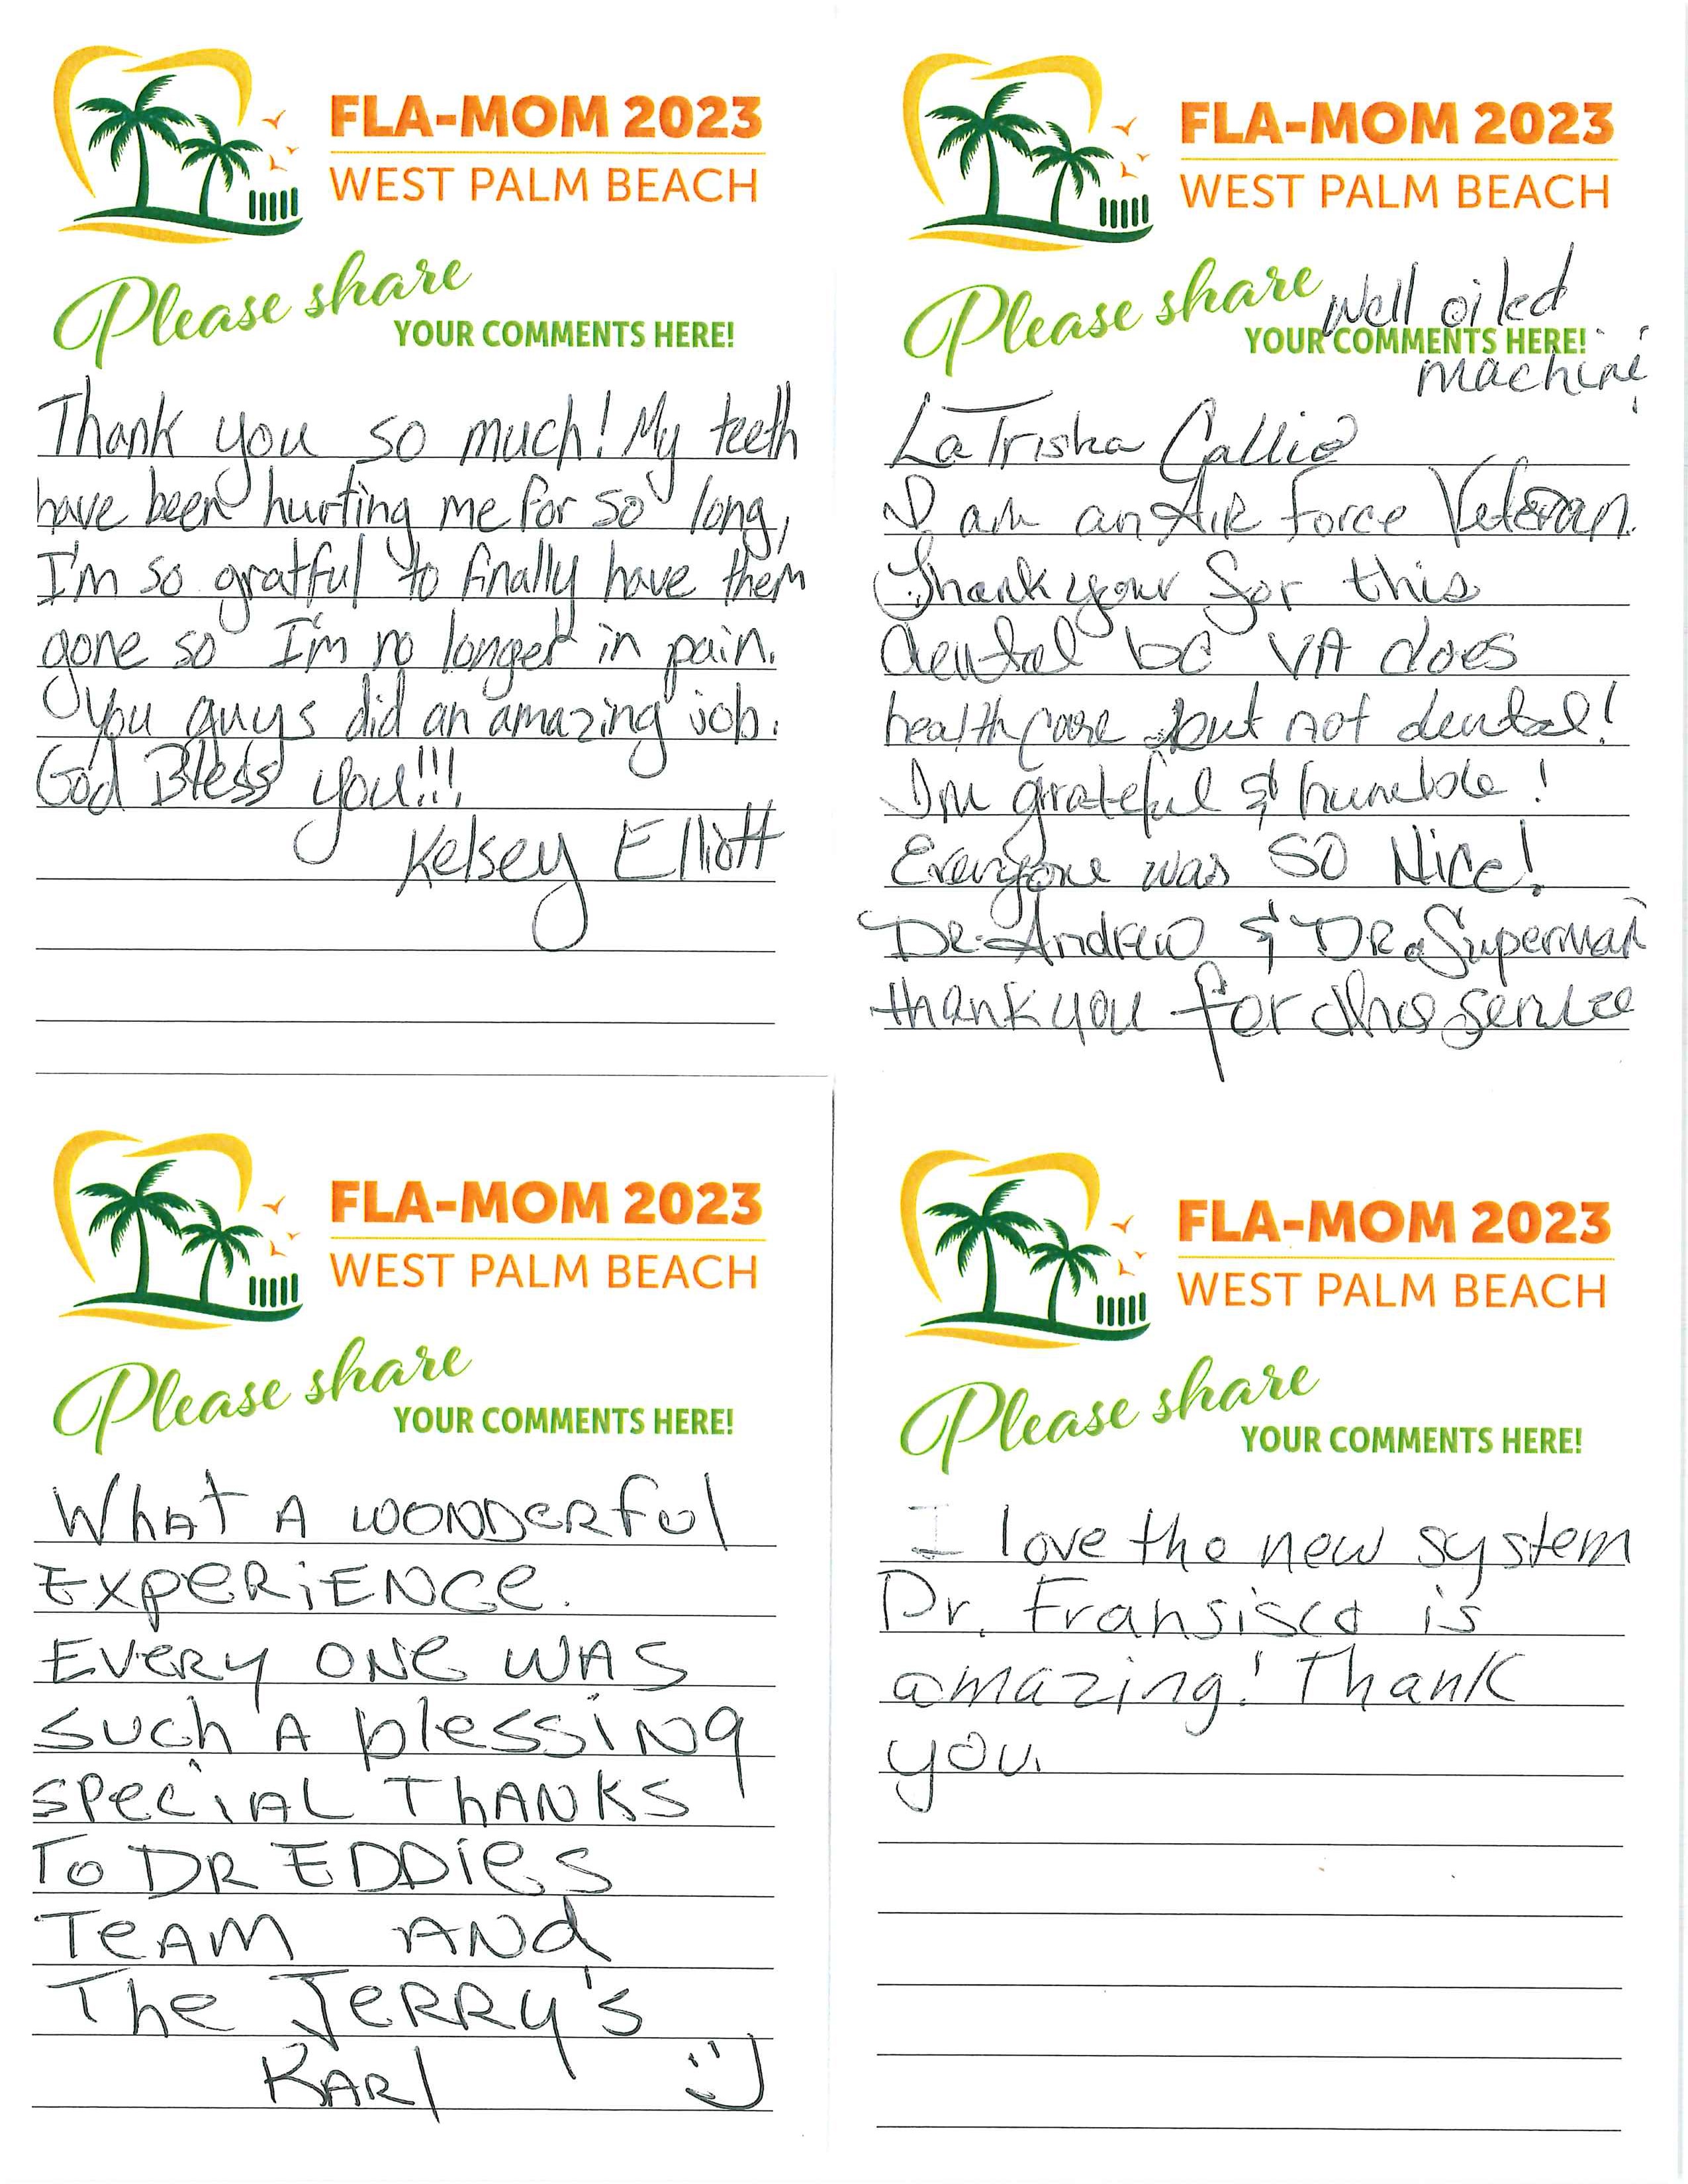 FLA-MOM 2023
WEST PALM BEACH
Please share
YOUR COMMENTS HERE!
Thank you so much! My teeth
have been hurting me for so long,
I'm so gratful to finally have them
gone so I'm no longer in pain.
You guys did an amazing job.
God Bless you!!!
Kelsey Elliott
FLA-MOM 2023
WEST PALM BEACH
Please share
YOUR COMMENTS HERE!
Well oiled
machine!
LaTriska Callie
I am an Air force Veteran.
Thank your for this
dental bc VA does
healthcare but not dental!
Im grateful & humble!
Everyone was SO Nice!
Dr. Andrew & DR. Superman
thank you for this service
FLA-MOM 2023
WEST PALM BEACH
Please share
YOUR COMMENTS HERE!
WhAT A WONDERful
EXPERiENCe.
EVERY ONe WAS
such A blessing
speciAL ThANKS
To DR EDDies
TeAM ANd
The JeRRy's
KARl :)
FLA-MOM 2023
WEST PALM BEACH
Please share
YOUR COMMENTS HERE!
I love the new system
Dr. Fransisco is
amazing! Thank
you.